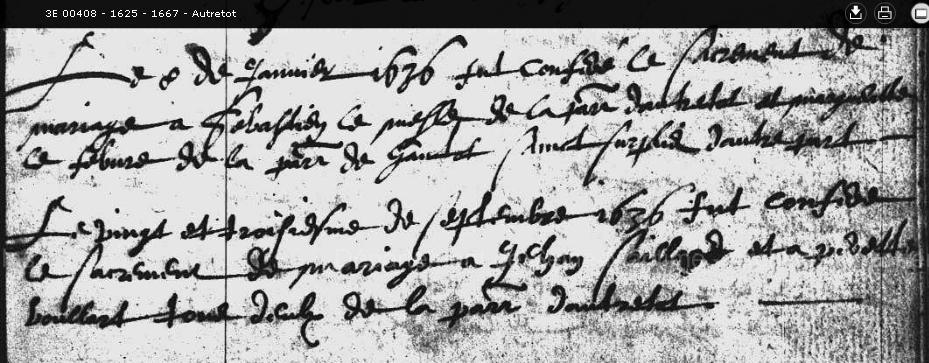 3E 00408 - 1625 - 1667 - Autretot
Le 8 de Janvier 1636 fut conferé le sacrement de
mariage a Sebastien le mesle de la parr dautretot et marguerite
le febure de la parr de dautre part
Le vingt et troisiesme de septembre 1636 fut conferé
le sacrement de mariage a Jehan et a
vaillant tous deulx de la parr dautretot